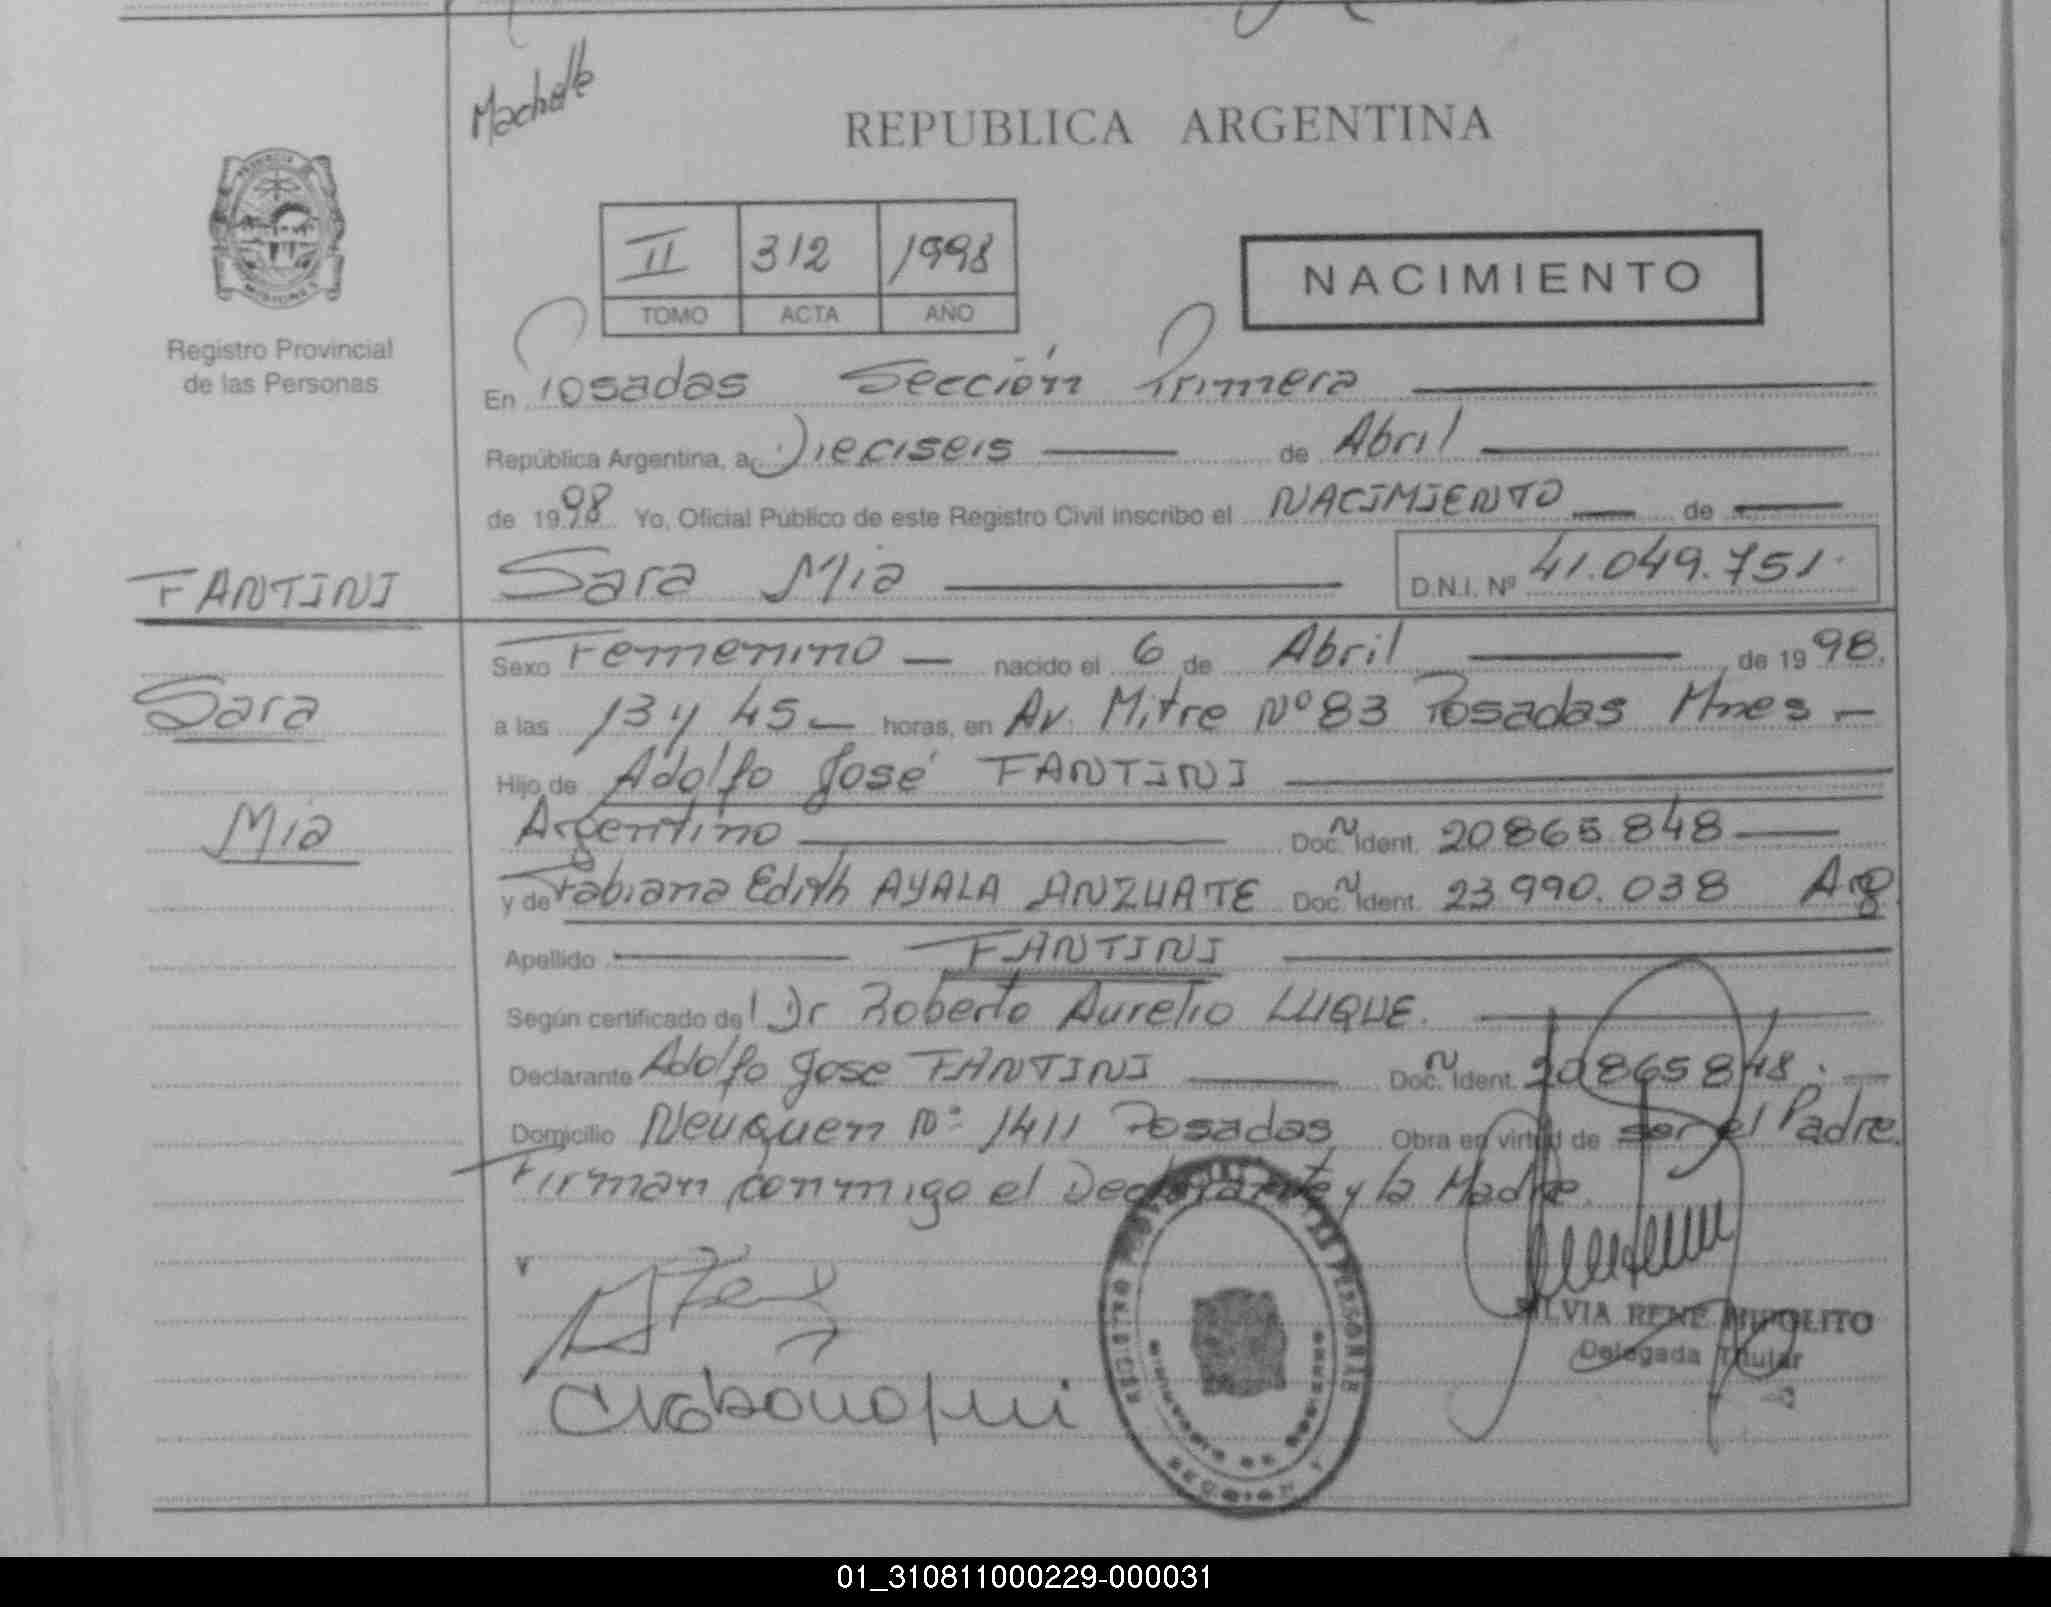 Machote
REPUBLICA ARGENTINA
II 312 1998
TOMO ACTA AÑO
NACIMIENTO
MISIONES
Registro Provincial
de las Personas
En Posadas Sección Primera
República Argentina, a Dieciseis de Abril
de 1998 Yo, Oficial Público de este Registro Civil inscribo el NACIMIENTO de
FANTINI
Sara Mia D.N.I. Nº 41.049.751.
Sexo Femenino nacido el 6 de Abril de 1998.
Sara
a las 13 y 45 horas, en Av. Mitre Nº 83 Posadas Mnes
Hijo de Adolfo José FANTINI
Mia
Argentino Doc. Ident. 20865848
y de Fabiana Edith AYALA ANZUATE Doc. Ident. 23990.038 Arg
Apellido FANTINI
Según certificado del Dr Roberto Aurelio LUQUE.
Declarante Adolfo Jose FANTINI Doc. Ident. 20865848.
Domicilio Neuquen Nº 1411 Posadas Obra en virtud de ser el Padre.
Firman conmigo el Declarante y la Madre.
SILVIA RENE HIPOLITO
Delegada Titular
01_310811000229-000031